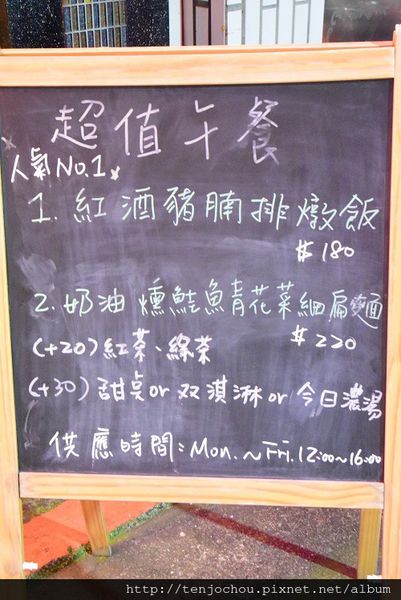 超值午餐
人氣No.1
1. 紅酒豬腩排燉飯
$180
2. 奶油燻鮭魚青花菜細扁麵
$220
(+20)紅茶、綠茶
(+30)甜桌or双淇淋or今日濃湯
供應時間:Mon.~Fri.12:00~16:00
http://tenjochou.pixnet.net/album